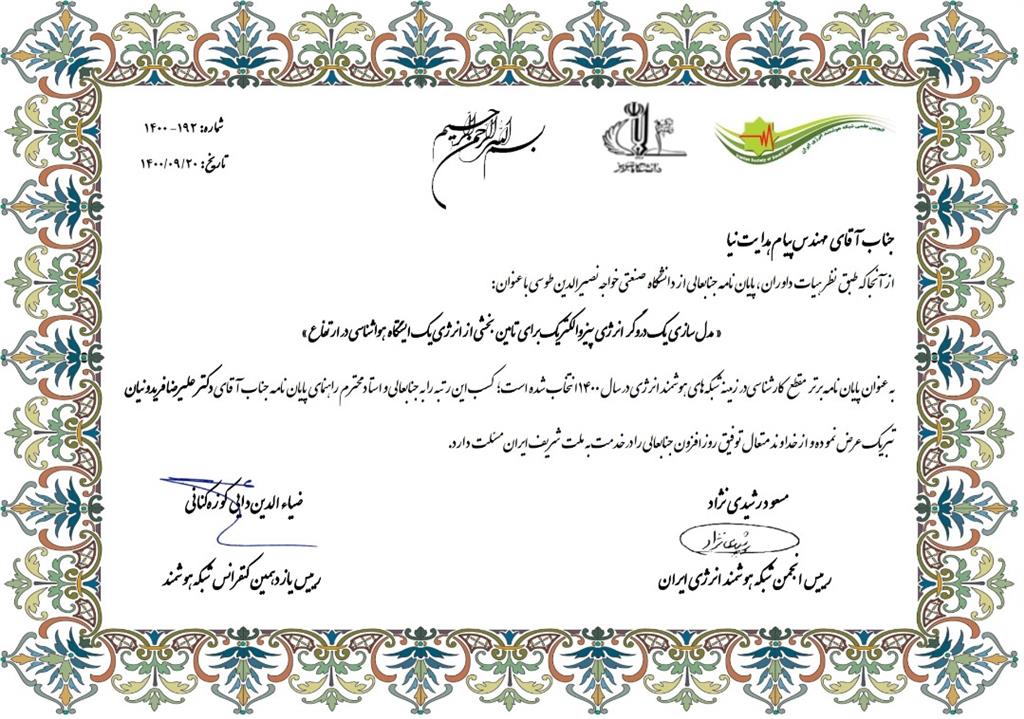 انجمن علمی شبکه هوشمند انرژی ایران
دانشگاه تبریز
بسم الله الرحمن الرحیم
شماره: ۱۹۲-۱۴۰۰
تاریخ: ۱۴۰۰/۰۹/۲۰
جناب آقای مهندس پیام هدایت نیا
از آنجا که طبق نظر هیات داوران، پایان نامه جنابعالی از دانشگاه صنعتی خواجه نصیرالدین طوسی با عنوان:
« مدل سازی یک دروگر انرژی پیزوالکتریک برای تامین بخشی از انرژی یک ایستگاه هواشناسی در ارتفاع »
به عنوان پایان نامه برتر مقطع کارشناسی در زمینه شبکه های هوشمند انرژی در سال ۱۴۰۰ انتخاب شده است؛ کسب این رتبه را به جنابعالی و استاد محترم راهنمای پایان نامه جناب آقای دکتر علیرضا فریدونیان
تبریک عرض نموده و از خداوند متعال توفیق روز افزون جنابعالی را در خدمت به ملت شریف ایران مسئلت دارد.
مسعود رشیدی نژاد
رشیدی نژاد
رییس انجمن شبکه هوشمند انرژی ایران
ضیاء الدین دایی کوزه کنانی
رییس یازدهمین کنفرانس شبکه هوشمند